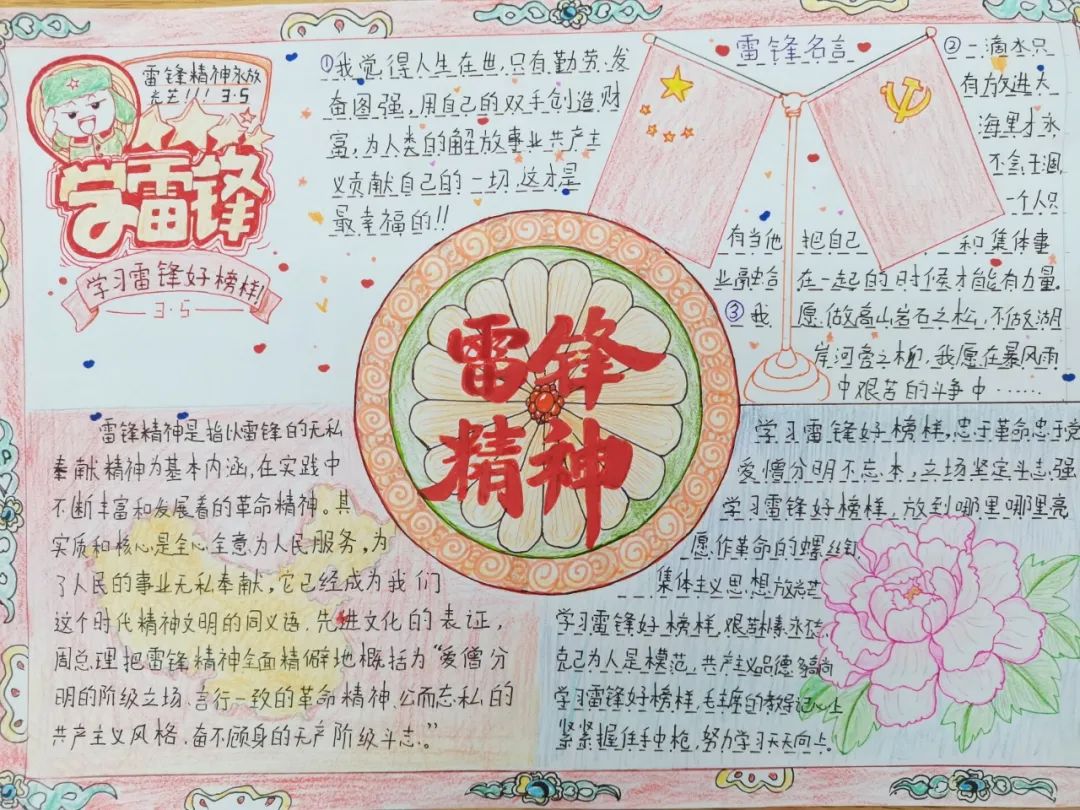 雷锋精神永放
光芒!!! 3·5
学雷锋
学习雷锋好榜样!
3·5
①我觉得人生在世,只有勤劳,发
奋图强,用自己的双手创造财
富,为人类的解放事业共产主
义贡献自己的一切,这才是
最幸福的!!
雷锋名言
②一滴水只
有放进大
海里才永
不会干涸,
一个人只
有当他 把自己 和集体事
业融合 在一起的时候才能有力量。
③我 愿做高山岩石之松,不做湖
岸河旁之柳,我愿在暴风雨
中艰苦的斗争中……
雷锋
精神
雷锋精神是指以雷锋的无私
奉献精神为基本内涵,在实践中
不断丰富和发展着的革命精神。其
实质和核心是全心全意为人民服务,为
了人民的事业无私奉献,它已经成为我们
这个时代精神文明的同义语、先进文化的表证,
周总理把雷锋精神全面精僻地概括为“爱憎分
明的阶级立场、言行一致的革命精神、公而忘私的
共产主义风格、奋不顾身的无产阶级斗志。”
学习雷锋好榜样,忠于革命忠于党
爱憎分明不忘本,立场坚定斗志强
学习雷锋好榜样,放到哪里哪里亮
愿作革命的螺丝钉
集体主义思想放光芒
学习雷锋好榜样,艰苦朴素永不忘
克己为人是模范,共产主义品德多高尚
学习雷锋好榜样,毛主席的教导记心上
紧紧握住手中枪,努力学习天天向上。